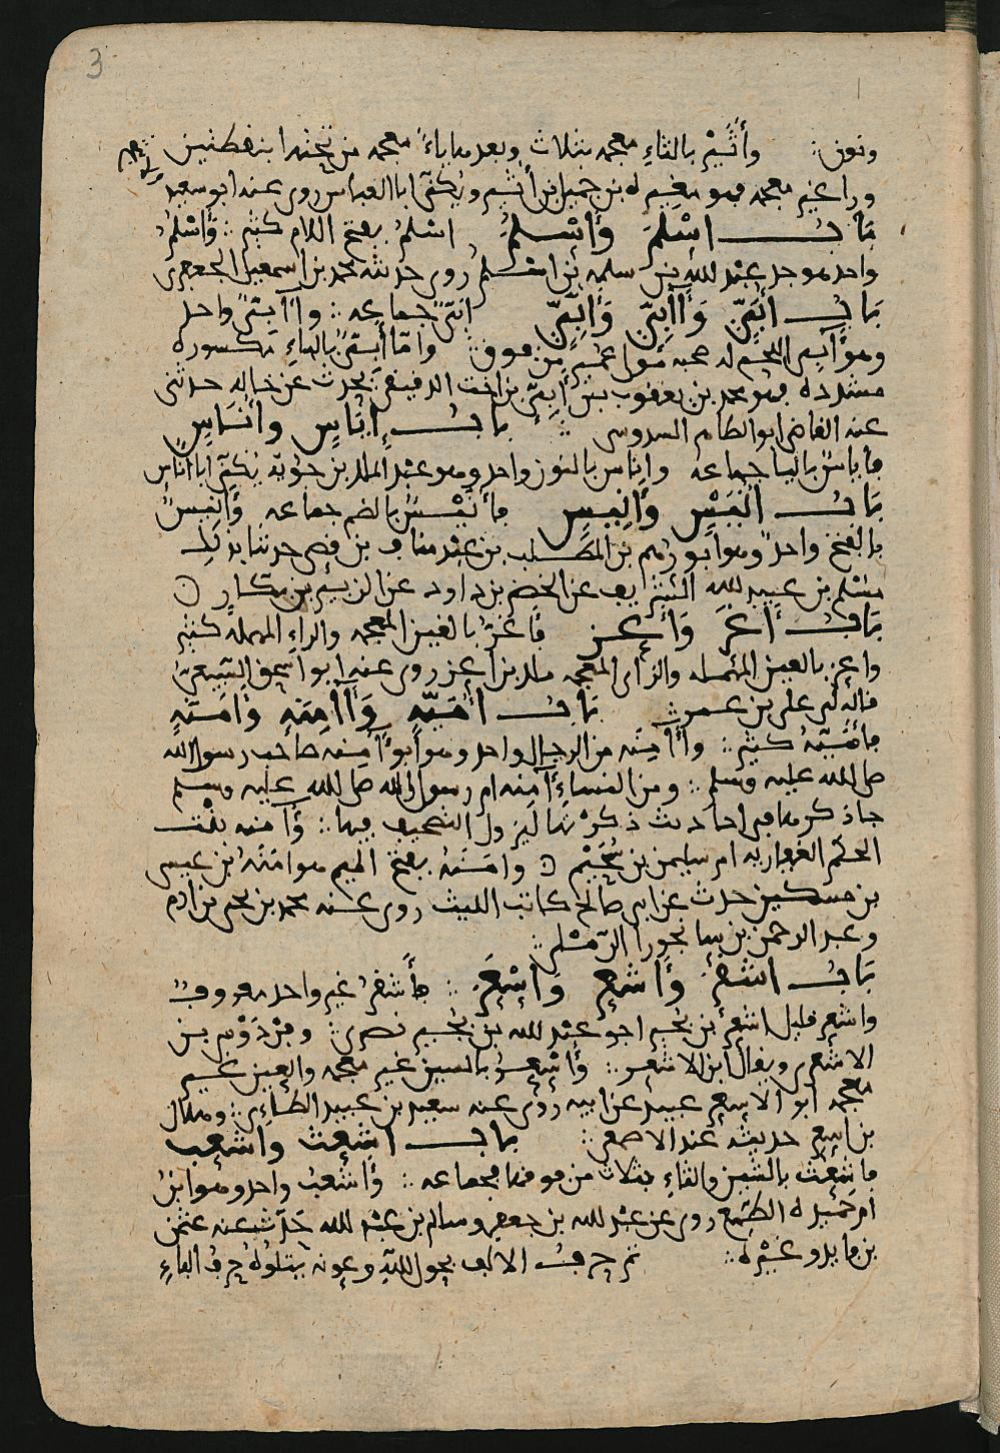 3
ونون ∴ وأثيم بالثاء معجمة بثلاث وبعدها ياء معجمة من تحتها بنقطتين
وراء غير معجمة فهو مغيرة بن جميل بن أثيم ويكنى ابا العباس روى عنه ابو سعيد
باب اسْلَمَ وأَسْلُمَ اسلم بفتح اللام كثير ∴ وأسلُم
واحد هو جد عبد الله بن سلمه بن اسلم روى حديثه محمد بن اسمعيل الجعفري
باب أُبَيّ وآبي وأُبَيّ أبي جماعه ∴ وآبي واحد
وهو آبي اللحم له صحبه مولى عمير من فوق واما أبي بالباء مكسوره
مشدده فهو محمد بن يعقوب بن أبي بن اخت الدقيقي يحدث عن خاله حدثني
عنه القاضي ابو الطاهر السدوسي ∴ باب إناس وأناس
فاياس باليا جماعه واناس بالنون واحد وهو عبد الملك بن جؤيه يكنى ابا اناس
باب أنيس وأنيس فأنيس بالضم جماعه وأنيس
بالفتح واحد وهو ابو رهم بن المطلب بن عبد مناف بن قصي حدثنا بذلك
مسلم بن عبيد الله الشريف عن الخضر بن داود عن الزبير بن بكار
باب أغر وأعز فأغر بالغين المعجمه والراء المهملة كثير
واعز بالعين المهمله والزاي المعجمه ملك بن اعز روى عنه ابو اسحق السبيعي
قاله لي علي بن عمر باب أميّه وآمنه وأمَنَه
فأميّه كثير ∴ وآمنه من الرجال واحد وهو ابو آمنه صاحب رسول الله
صلى الله عليه وسلم ∴ ومن النساء آمنه ام رسول الله صلى الله عليه وسلم
جا ذكرها في احاديث ذكرتها ليزول التصحيف فيها ∴ وآمنه بنت
الحكم الغفاريه ام سليمن بن سحيم وامنه بفتح الميم هو امنه بن عيسى
بن مسكين حدث عن ابي صالح كاتب الليث روى عنه محمد بن بحر بن آدم
وعبد الرحمن بن سانجور الرملي ∴
باب اشقر وأشعر وأسعر ∴ فأشقر غير واحد معروف
واشعر قليل اشعر بن بجير اخو عبد الله بن بجير بصري ∴ وفردوس بن
الاشعري ويقال ابن الاشعر ∴ وأسعر بالسين غير معجمه والعين غير
معجمه ابو الاسعر عبيد عن ابيه روى عنه سعيد بن عبيد الطائي ∴ وهلال
بن اسعر حديثه عند الاصمعي ∴ باب اشعث واشعب
فأشعث بالشين والثاء بثلاث من فوقها فجماعه ∴ وأشعب واحد وهو ابن
ام حميده الطمع روى عن عبد الله بن جعفر وسالم بن عبد الله حدث عنه عثمن
بن فايد وغيره ∴ تم حرف الالف بحول الله وعونه يتلوه حرف الباء